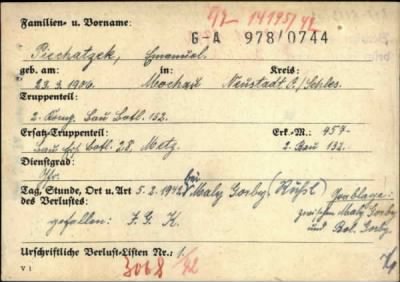 Familien- u. Vorname: 14195/42
G-A 978/0744
Piechatzek, Emanuel.
geb. am: in Kreis:
23.3.1906. Mochau Neustadt O./Schles.
Truppenteil:
2. Komp. Bau Batl. 132.
Ersatz-Truppenteil: Erk.-M.: 457
Bau Ers. Batl. 28. Metz. 2. Bau 132.
Dienstgrad:
Tag, Stunde, Ort u. Art 5.2.1942 bei Maly Gorby (Rußl.) Grablage:
des Verlustes: zwischen Maly Gorby
gefallen: I. G. K. und Bol. Gorby.
Urschriftliche Verlust-Listen Nr.: 1.
3068/42
V 1